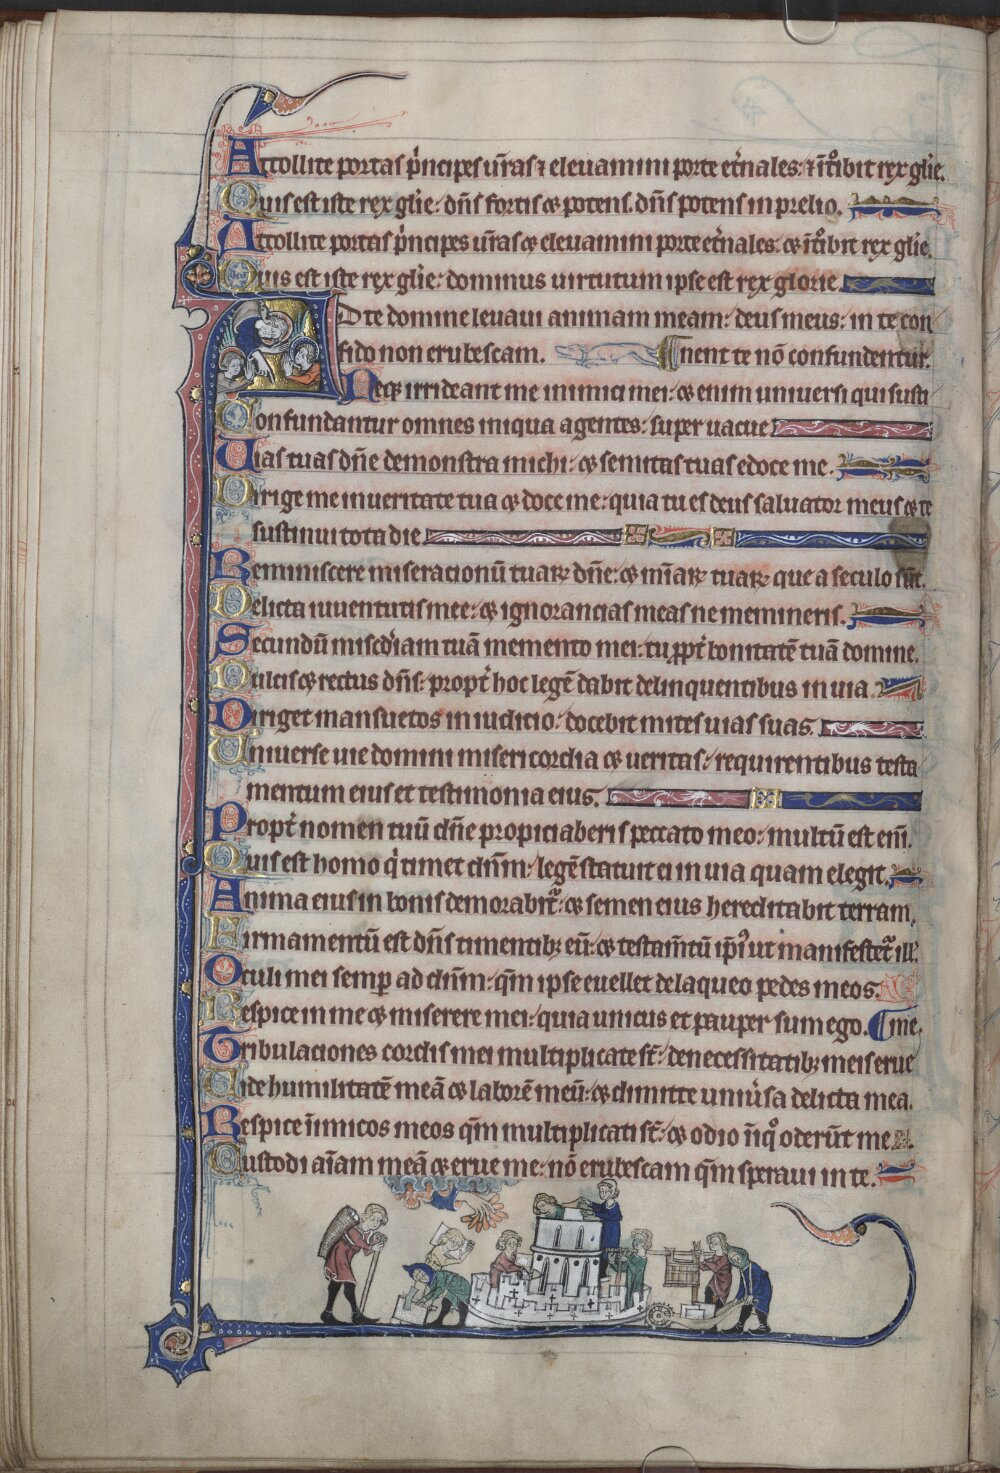 Attollite portas p̍ncipes ur̃as ⁊ eleuamini porte et̃nales: ⁊ ĩtͦibit rex glĩe.
Quis est iste rex glĩe: dñs fortis ⁊ potens. dñs potens in prelio.
Attollite portas p̍ncipes ur̃as ⁊ eleuamini porte et̃nales: ⁊ ĩtͦibit rex glĩe.
Quis est iste rex glĩe: dominus uirtutum ipse est rex glorie.
AD te domine leuaui animam meam: deus meus: in te con
fido non erubescam. ¶nent te nõ confundentur.
Neq; irrideant me inimici mei: ⁊ enim uniuersi qui susti
Confundantur omnes iniqua agentes: super uacue
Uias tuas dñe demonstra michi: ⁊ semitas tuas edoce me.
Dirige me in ueritate tua ⁊ doce me: quia tu es deus saluator meus ⁊ te
sustinui tota die
Reminiscere miseracionũ tuaꝝ dñe: ⁊ mĩaꝝ tuaꝝ que a seculo sũt.
Delicta iuuentutis mee: ⁊ ignorancias meas ne memineris.
Secundũ misc̃diam tuã memento mei: tu ꝓpt̃ bonitatẽ tuã domine.
Dulcis ⁊ rectus dñs: propt̃ hoc legẽ dabit delinquentibus in uia
Diriget mansuetos in iudicio: docebit mites uias suas.
Uniuerse uie domini misericordia ⁊ ueritas: requirentibus testa
mentum eius et testimonia eius.
Propt̃ nomen tuũ dñe propiciaberis peccato meo: multũ est em̃.
Quis est homo q̍ timet dñm: legẽ statuit ei in uia quam elegit.
Anima eius in bonis demorabit̃: ⁊ semen eius hereditabit terram.
Firmamentũ est dñs timentib; eũ: ⁊ testam̃tũ ip̃iꝰ ut manifestet̃ ill'.
Oculi mei semp̱ ad dñm: qm̃ ipse euellet de laqueo pedes meos.
Respice in me ⁊ miserere mei: quia unicus et pauper sum ego. ¶me.
Tribulaciones cordis mei multiplicate st̃: de necessitatib; meis erue
Uide humilitatẽ meã ⁊ laborẽ meũ: ⁊ dimitte uniu̍sa delicta mea.
Respice ĩimicos meos qm̃ multiplicati st̃: ⁊ odio ĩiqͦ oderũt me
Custodi aĩam meã ⁊ erue me: nõ erubescam qm̃ speraui in te.